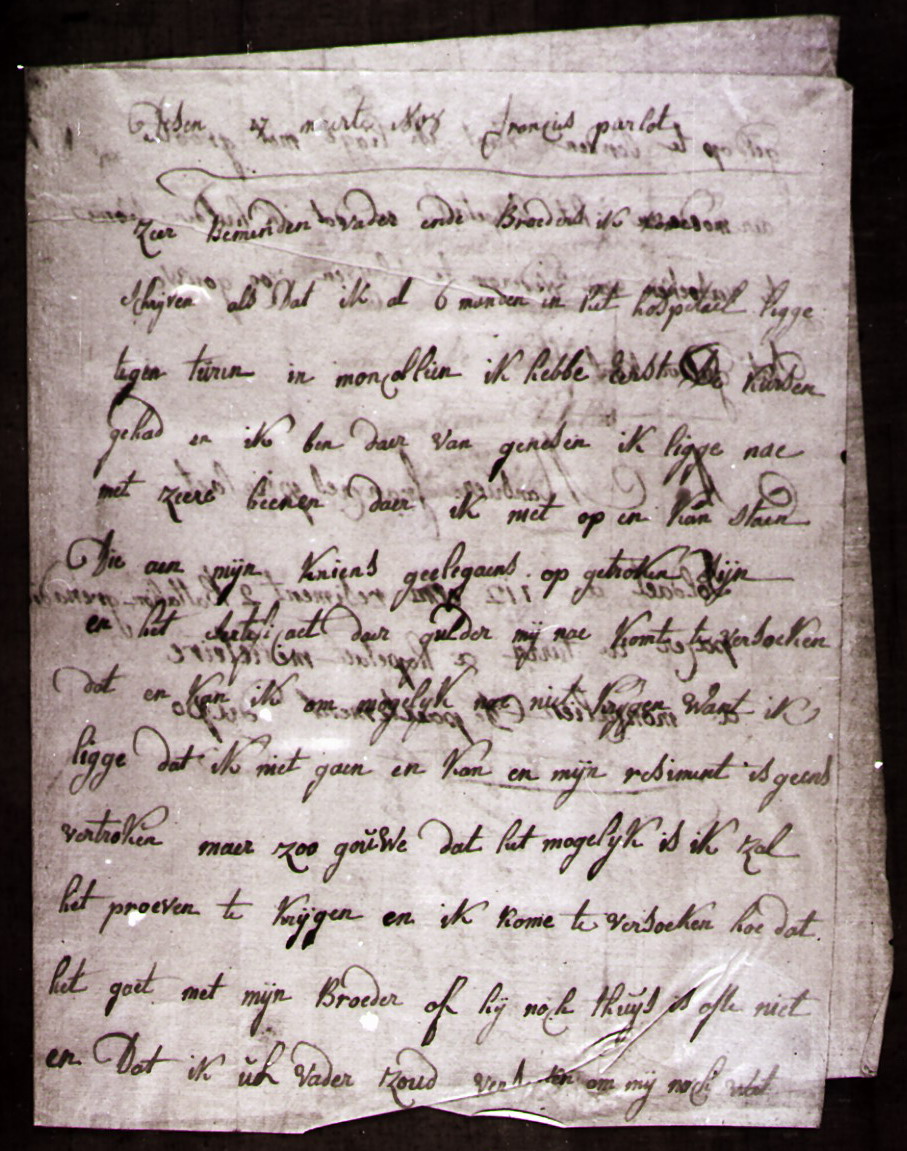 Desen 27 maerte 1808 francius parlot
zeer Beminden vader ende Broeders ik kome
schrijven als Dat ik al 6 manden in het hospitael ligge
tegen turin in moncallien ik hebbe eerst De kursen
gehad en ik ben daer van genesen ik ligge nae
met zeere beenen daer ik niet op en kan staen
Die aen mijn kniens geelegaens op getroken zijn
en het sertifi caet daer gulder mij nae komt te versoeken
dat en kan ik om mogelijk nae niet krijgen want ik
ligge dat ik niet gaen en kan en mijn resiment is geens
vertroken maer zoo gouwe dat het mogelijk is ik zal
het proeven te krijgen en ik kome te versoeken hoe dat
het gaet met mijn Broeder of hij noch thuijs is ofte niet
en Dat ik uh vader zoud om mij noch wat